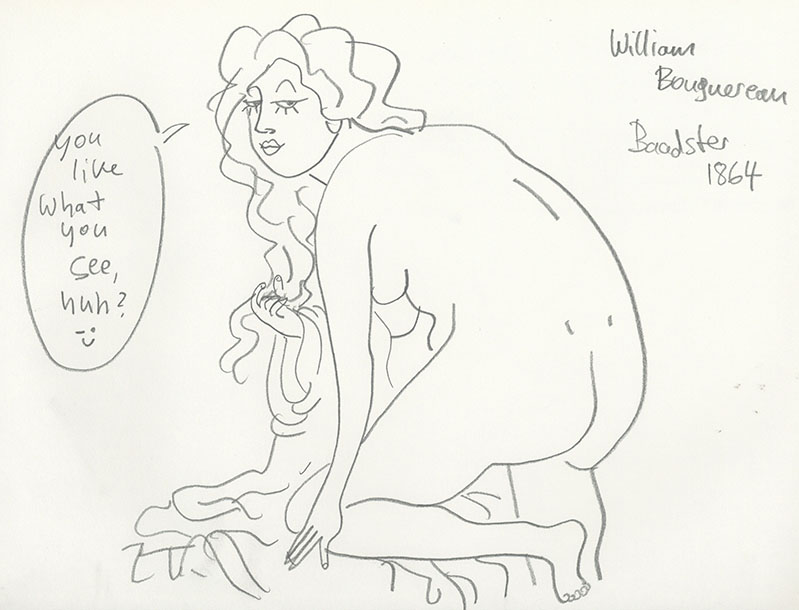 you
like
what
you
see,
huh?
William
Bouguereau
Baadster
1864